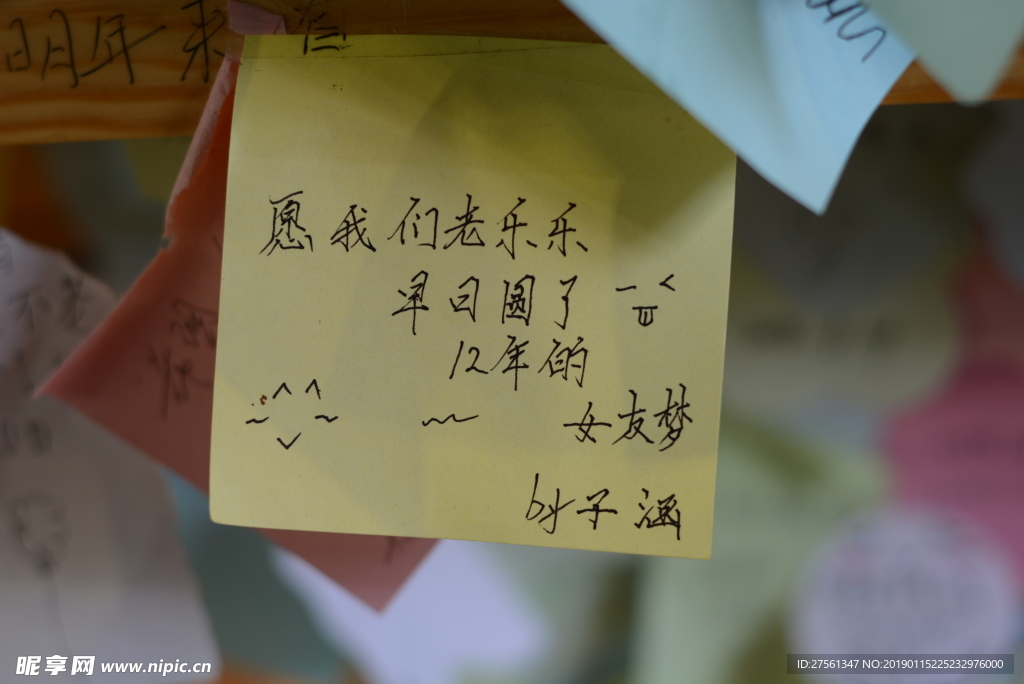 明年来
愿我们老乐乐
早日圆了
12年的
女友梦
by子涵
不老
昵享网 www.nipic.cn
ID:27561347 NO:20190115225232976000